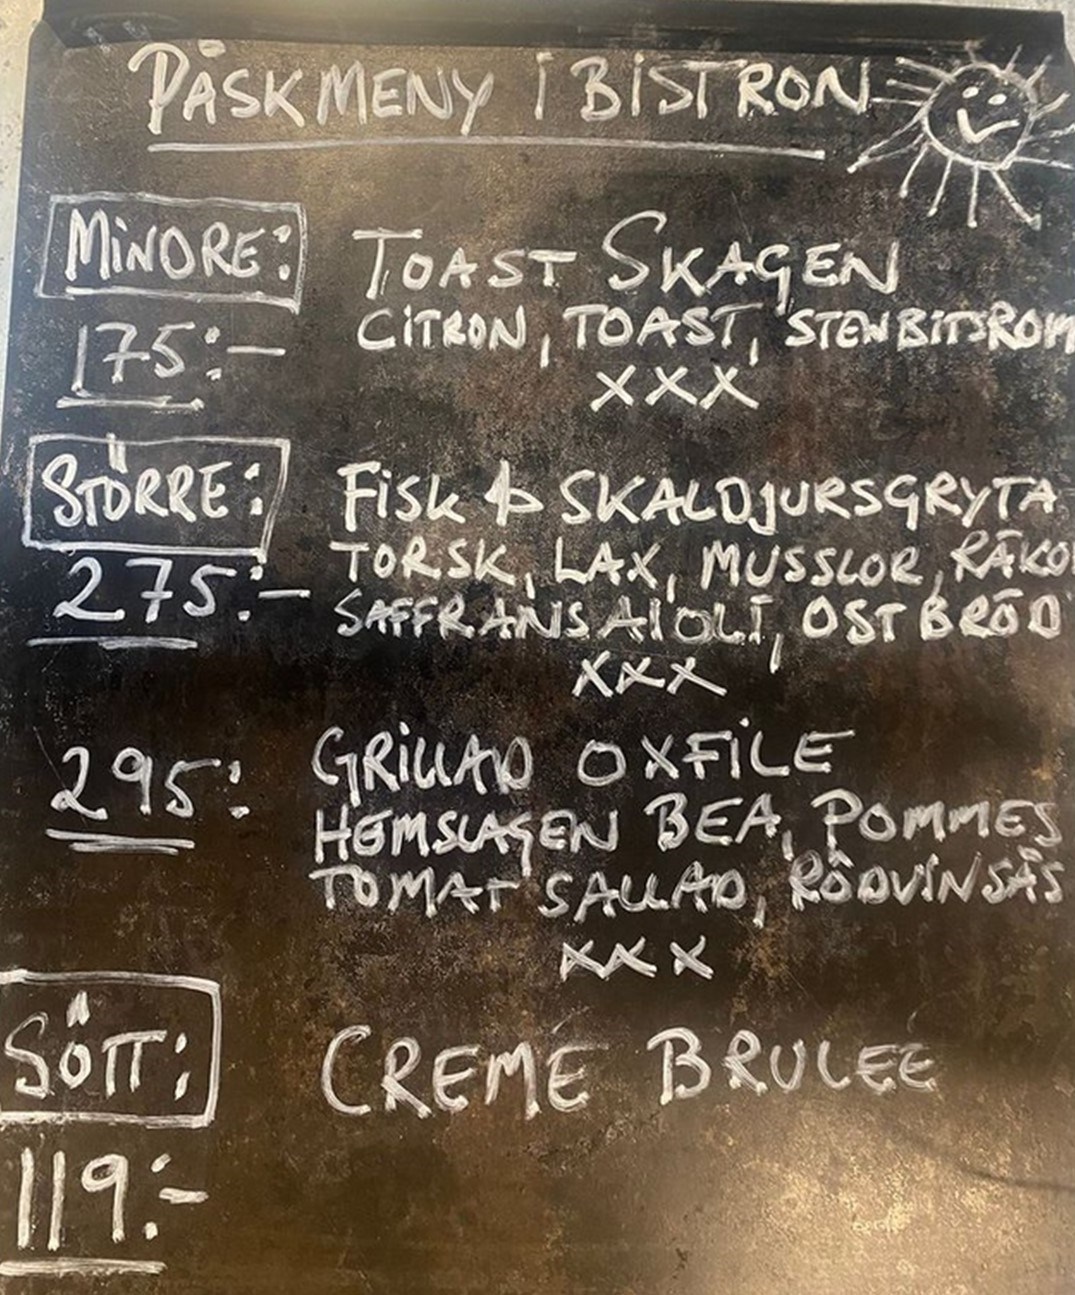 PÅSKMENY I BISTRON
MINDRE:
175:-
TOAST SKAGEN
CITRON, TOAST, STENBITSROM
XXX
STÖRRE:
275:-
FISK & SKALDJURSGRYTA
TORSK, LAX, MUSSLOR, RÄKOR
SAFFRANS AIOLI, OST BRÖD
XXX
295:
GRILLAD OXFILE
HEMSLAGEN BEA, POMMES
TOMAT SALLAD, RÖDVINSÅS
XXX
SÖTT:
119:-
CREME BRULEE